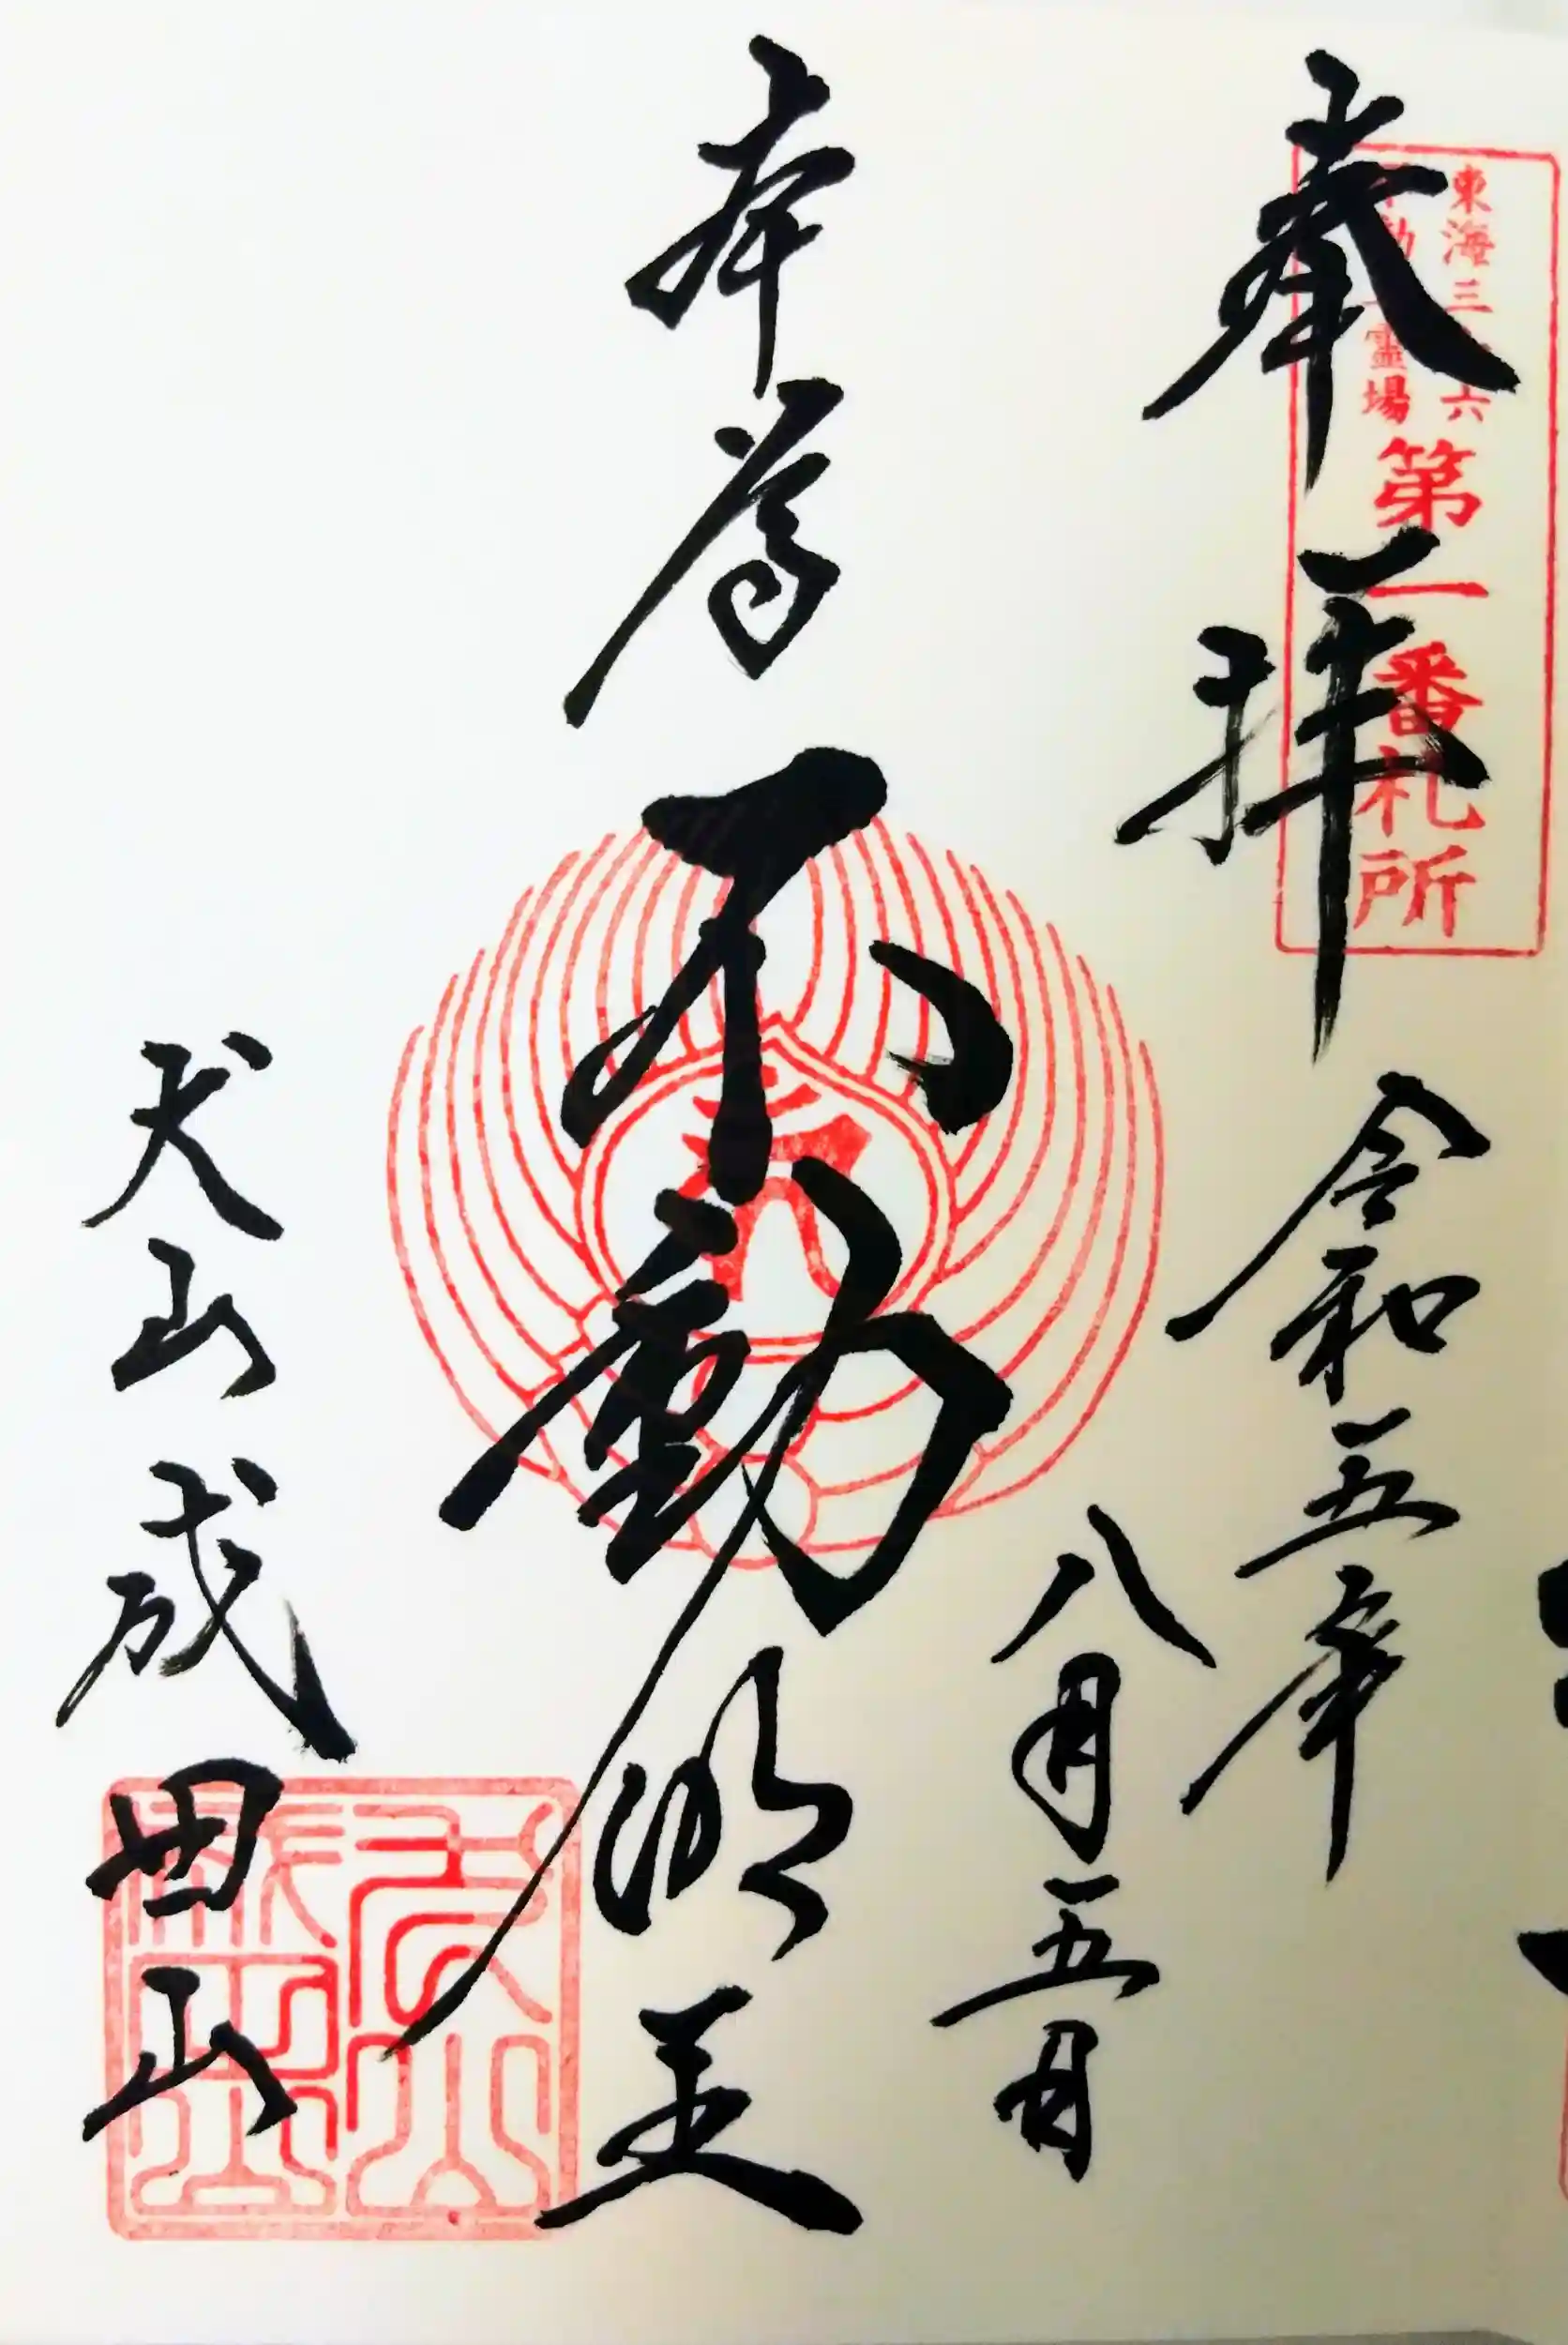 奉拝
東海三六
不動霊場
第一番札所
令和五年
八月五日
本尊不動明王
犬山成田山